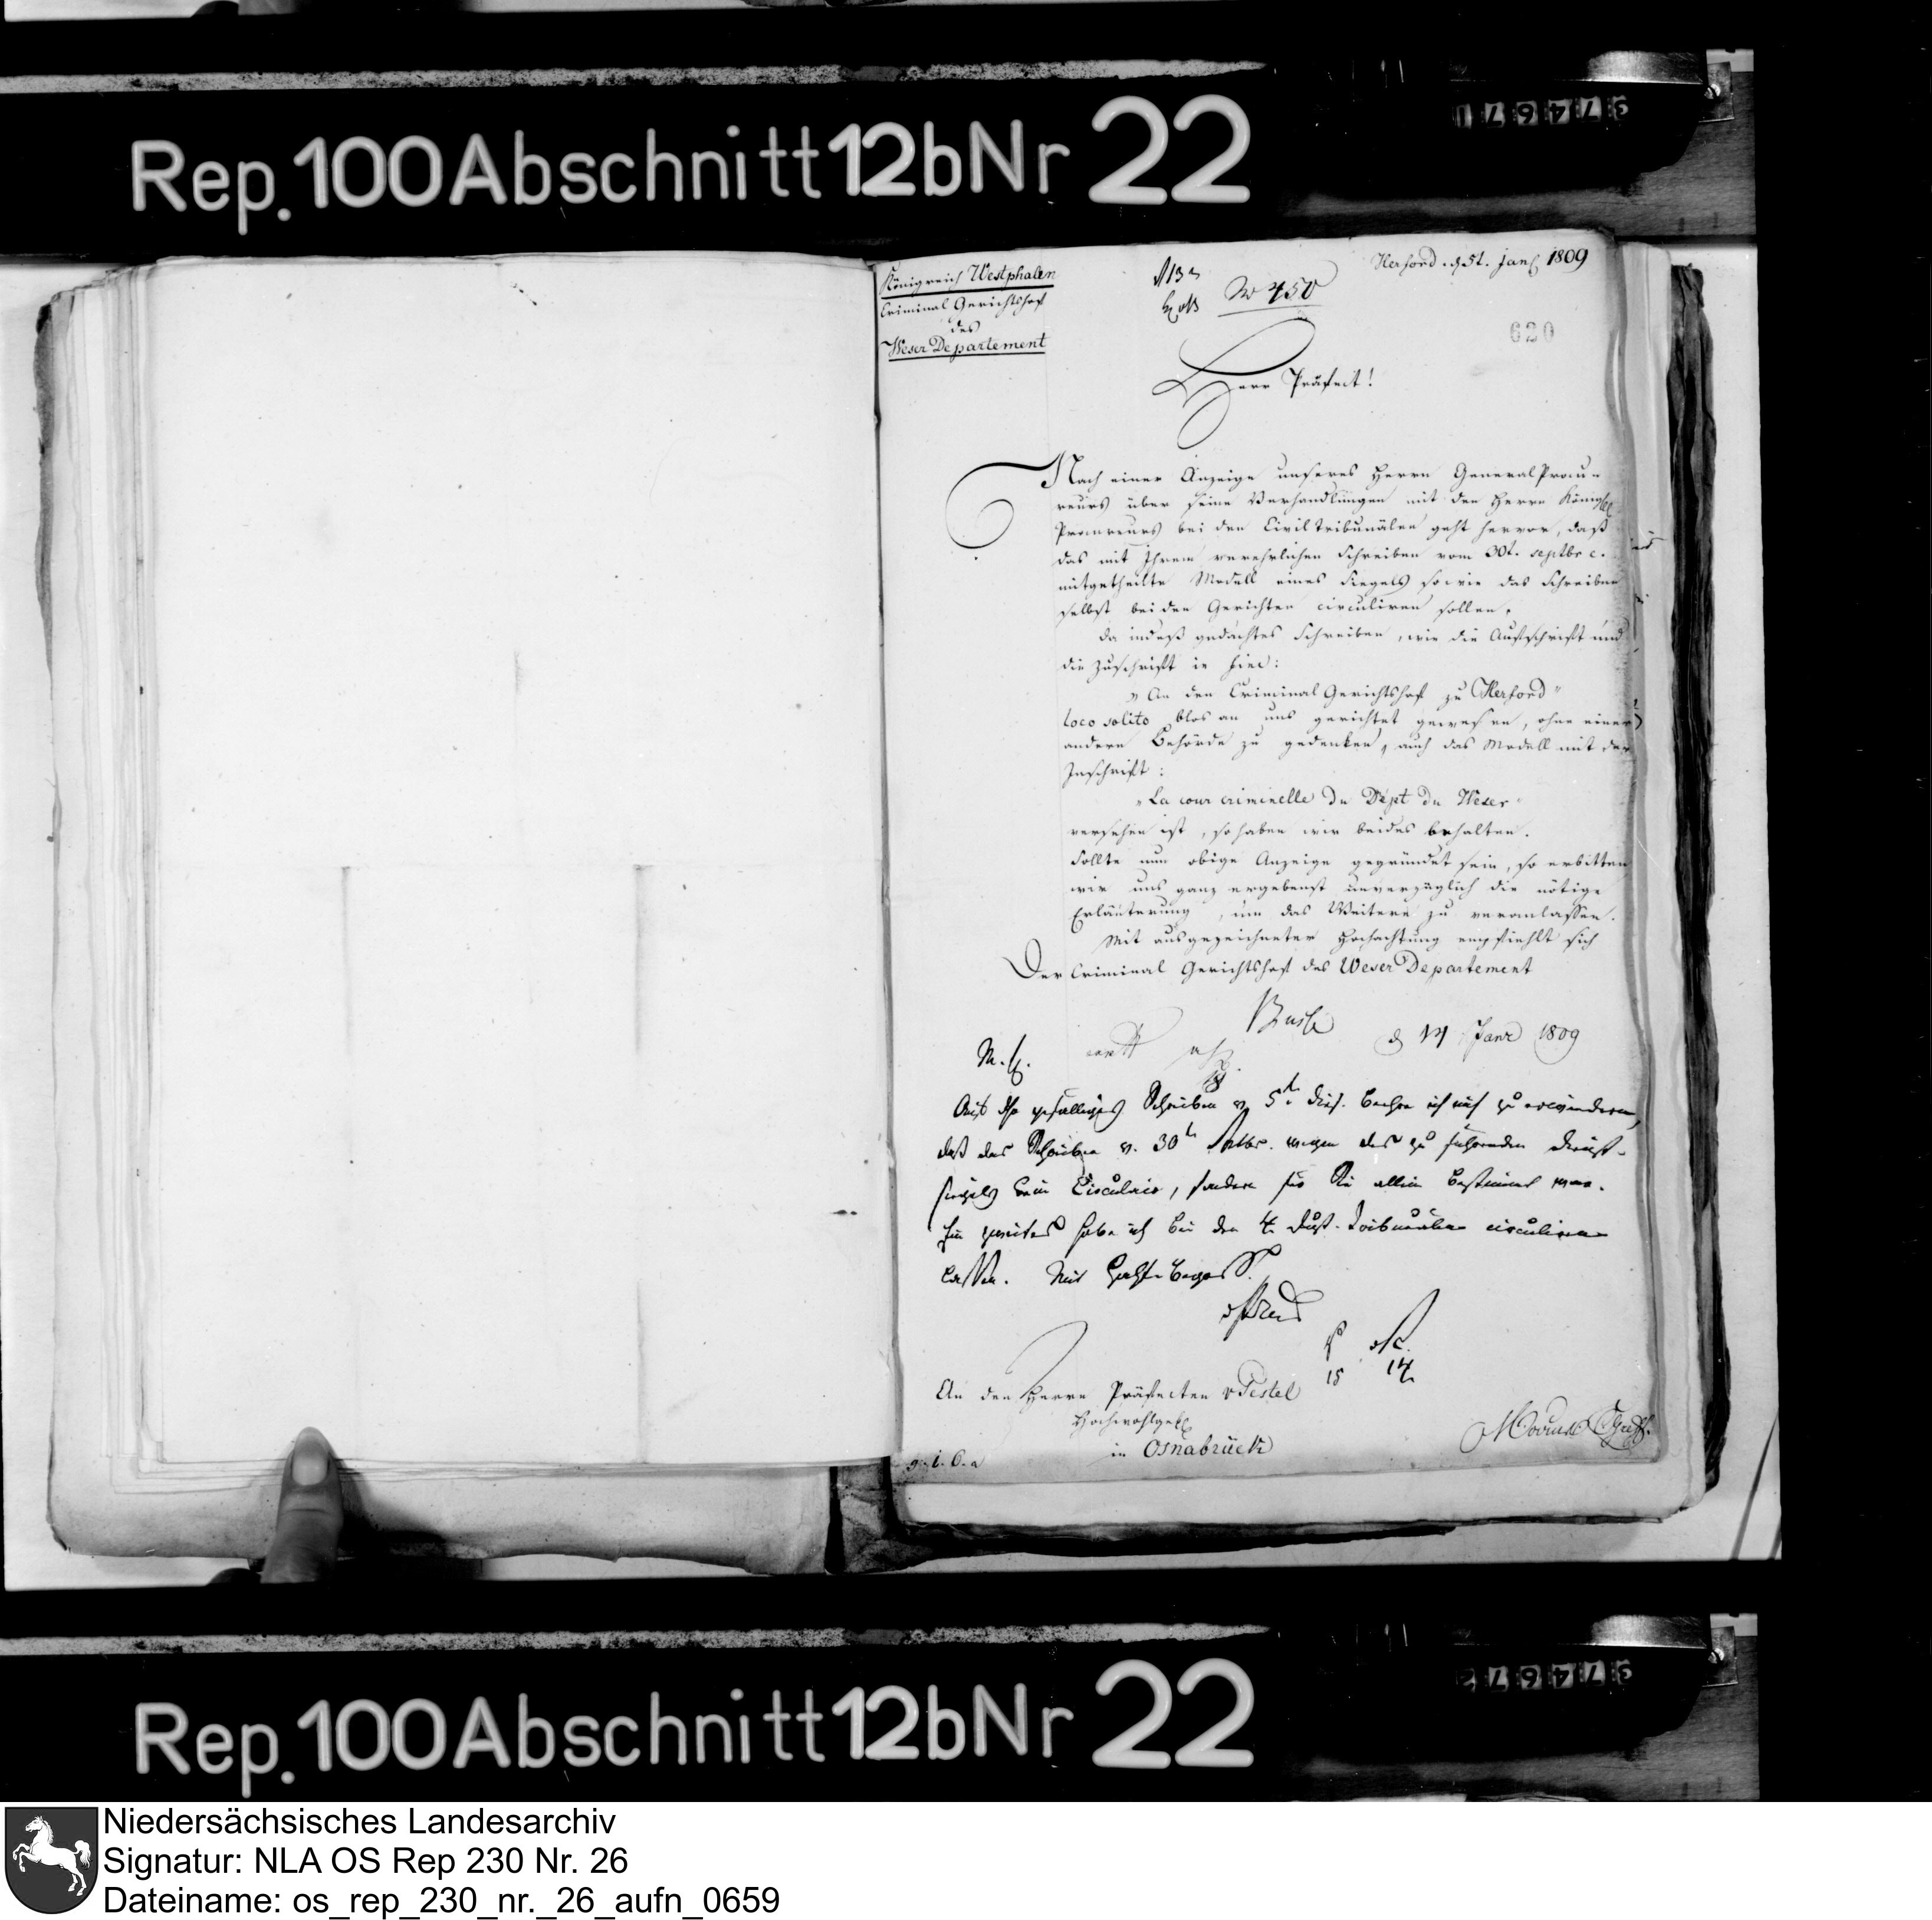 Rep. 100 Abschnitt 12b Nr 22
Königreich Westphalen
Criminal Gerichtshof
des
Weser Departement
No 450
Herford. d 5t. Jan 1809
620
Herr Präfect!
Nach einer Anzeige unseres Herrn General Procu-
reurs über seine Verhandlungen mit den Herrn Königl
Procureurs bei den Civiltribunälen geht hervor, daß
das mit Ihrem verehrlichen Schreiben vom 30t. septbr c.
mitgetheilte Modell eines Siegels sowie das Schreiben
selbst bei den Gerichten circuliren sollen.
Da indeß gedachtes Schreiben, wie die Aufschrift und
die Zuschrift in fine:
"An den Criminal Gerichtshof zu Herford"
loco solito blos an uns gerichtet gewesen, ohne einer
andern Behörde zu gedenken, auch das Modell mit der
Inschrift:
"La cour criminelle du Dépt du Weser"
versehen ist, so haben wir beides behalten.
Sollte nun obige Anzeige gegründet sein, so erbitten
wir uns ganz ergebenst unverzüglich die nötige
Erläuterung, um das Weitere zu veranlassen.
Mit ausgezeichneter Hochachtung empfiehlt sich
Der Criminal Gerichtshof des Weser Departement
d 14 Janr 1809
Auf Ihr gefälliges Schreiben v. 5t. dies. beehre ich mich zu erwiedern,
daß das Schreiben v. 30t. Septbr. wegen des zu führenden Dienst-
siegels kein Circulair, sondern für Sie allein bestimmt war.
Ein zweites habe ich bei den 4 Dist. Tribunälen circuliren
lassen. Mit
15
14
An den Herrn Präfecten v Pestel
Hochwohlgeb
in Osnabrück
Rep. 100 Abschnitt 12b Nr 22
Niedersächsisches Landesarchiv
Signatur: NLA OS Rep 230 Nr. 26
Dateiname: os_rep_230_nr._26_aufn_0659